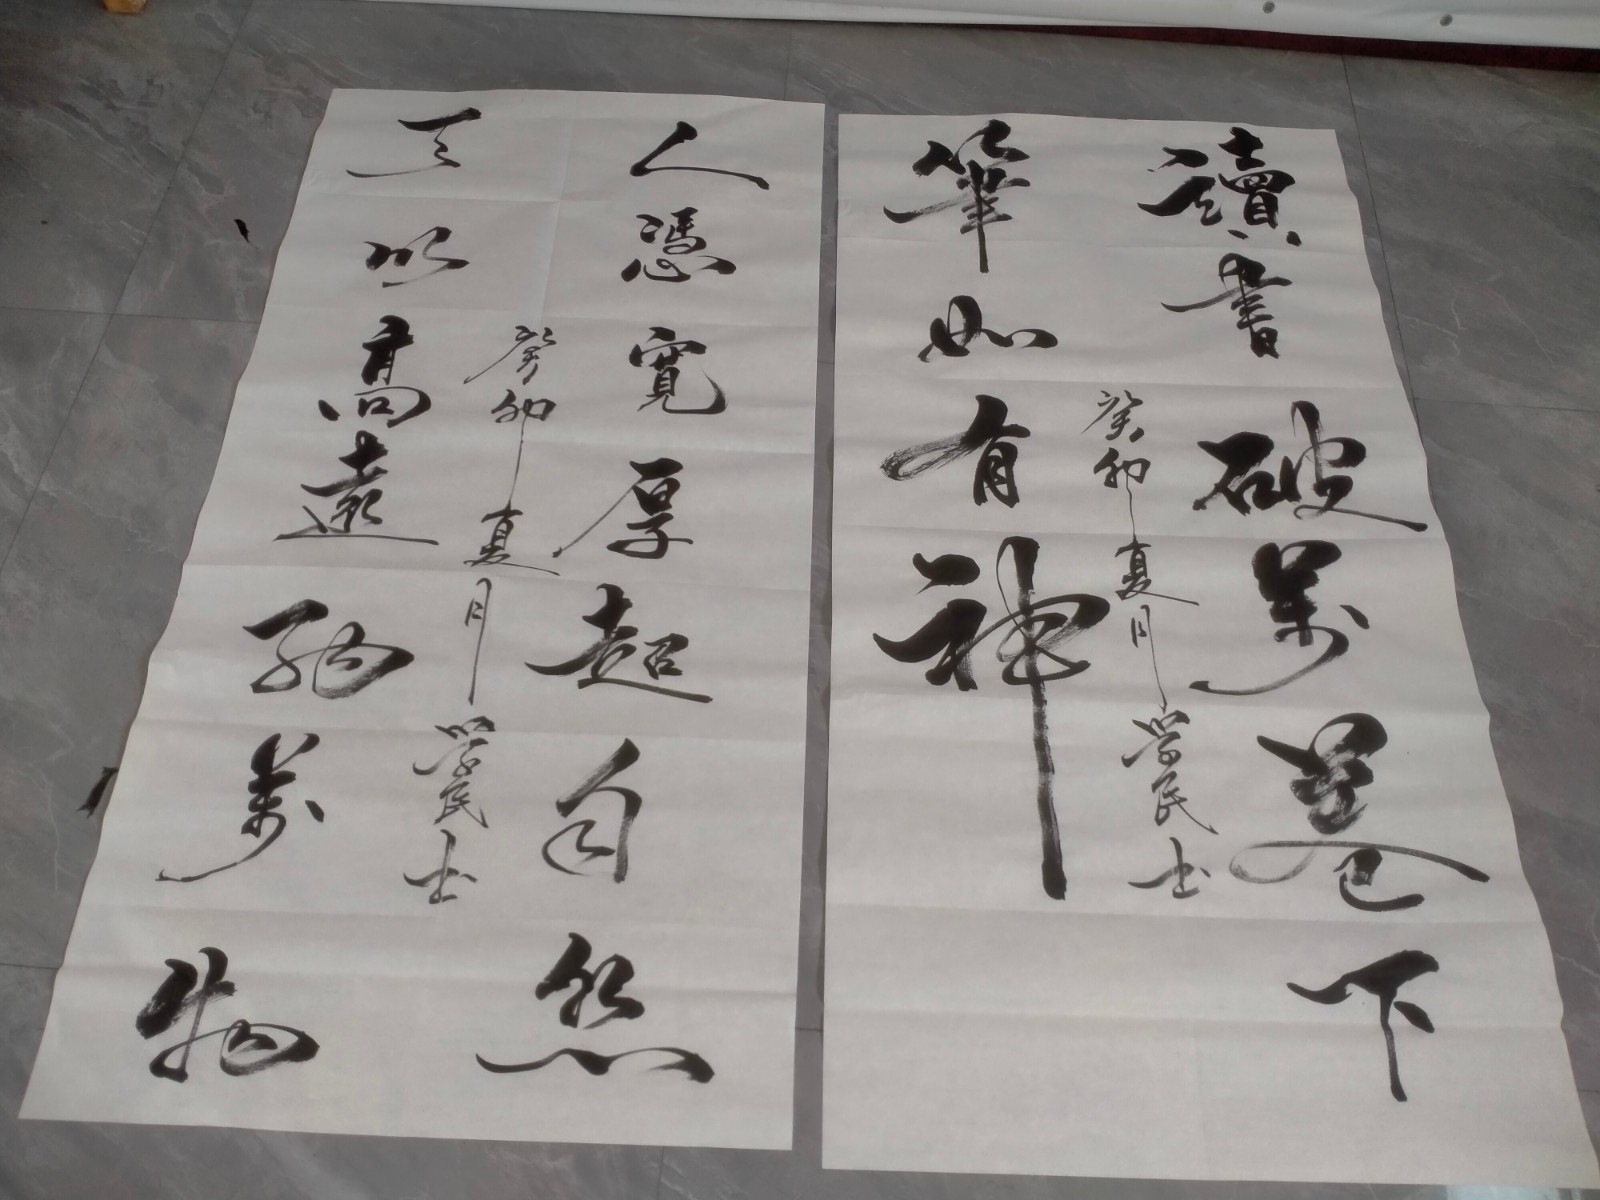 讀書破萬卷下
筆如有神
癸卯夏月学民书
人憑寬厚超自然
天以高遠萬物
癸卯夏月学民书